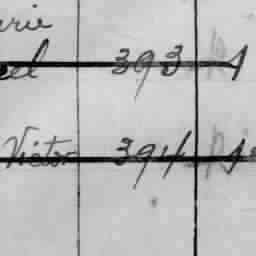 rie
el 393 1
Victor 394 1